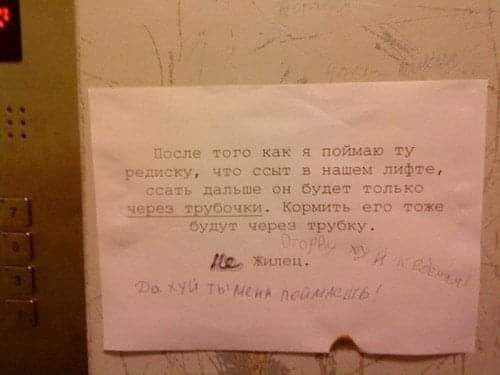 После того как я поймаю ту
редиску, что ссыт в нашем лифте,
ссать дальше он будет только
через трубочки. Кормить его тоже
будут через трубку.
Оторву хуй к ебеням!
Не Жилец.
Да хуй ты меня поймаешь!
7